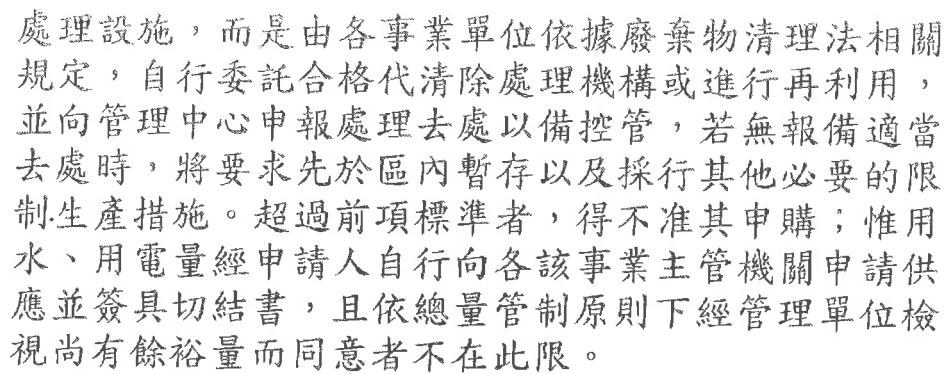 處理設施，而是由各事業單位依據廢棄物清理法相關
規定，自行委託合格代清除處理機構或進行再利用，
並向管理中心申報處理去處以備控管，若無報備適當
去處時，將要求先於區內暫存以及採行其他必要的限
制生產措施。超過前項標準者，得不准其申購；惟用
水、用電量經申請人自行向各該事業主管機關申請供
應並簽具切結書，且依總量管制原則下經管理單位檢
視尚有餘裕量而同意者不在此限。